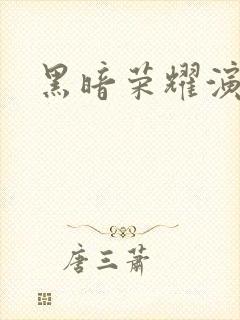 黑暗荣耀演
唐三萧